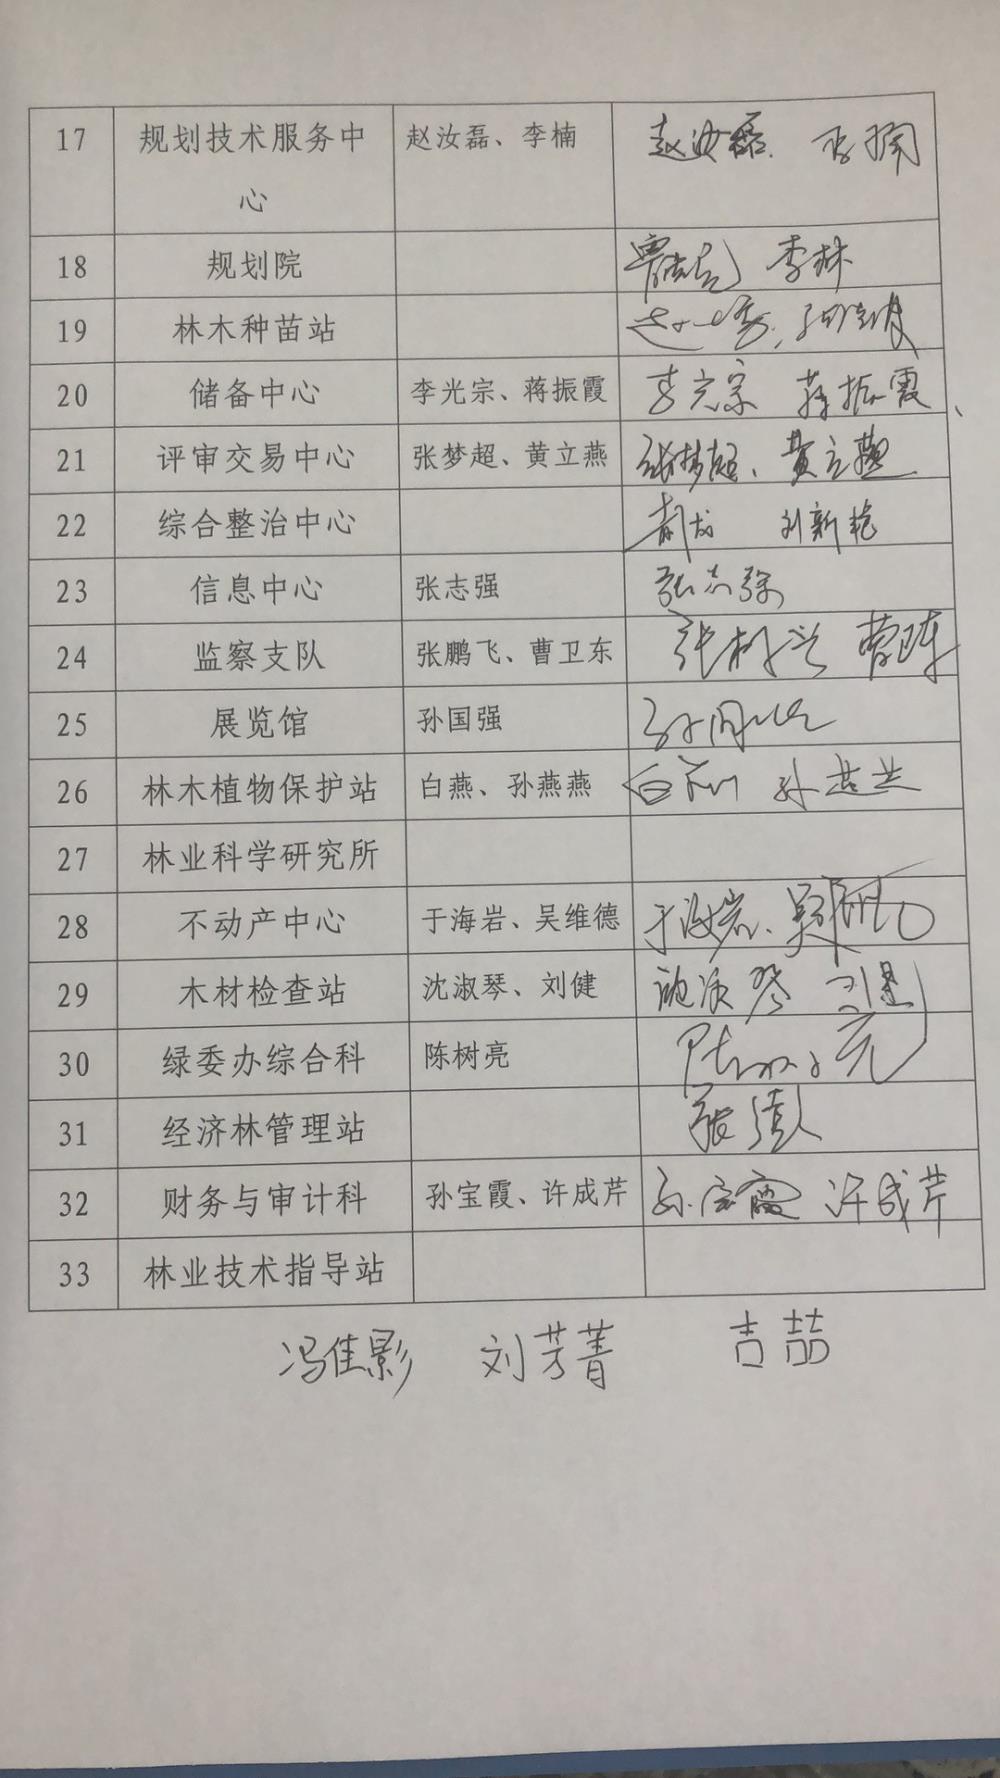 17 规划技术服务中 赵汝磊、李楠 赵汝磊、李楠
心
18 规划院 李林
19 林木种苗站
20 储备中心 李光宗、蒋振霞 李光宗 蒋振霞、
21 评审交易中心 张梦超、黄立燕 张梦超、黄立燕
22 综合整治中心 刘新艳
23 信息中心 张志强 张志强
24 监察支队 张鹏飞、曹卫东 曹卫东
25 展览馆 孙国强 孙国强
26 林木植物保护站 白燕、孙燕燕 白燕 孙燕燕
27 林业科学研究所
28 不动产中心 于海岩、吴维德 于海岩、吴维德
29 木材检查站 沈淑琴、刘健 沈淑琴 刘健
30 绿委办综合科 陈树亮 陈树亮
31 经济林管理站 张
32 财务与审计科 孙宝霞、许成芹 孙宝霞 许成芹
33 林业技术指导站
冯佳影 刘芳菁 吉喆